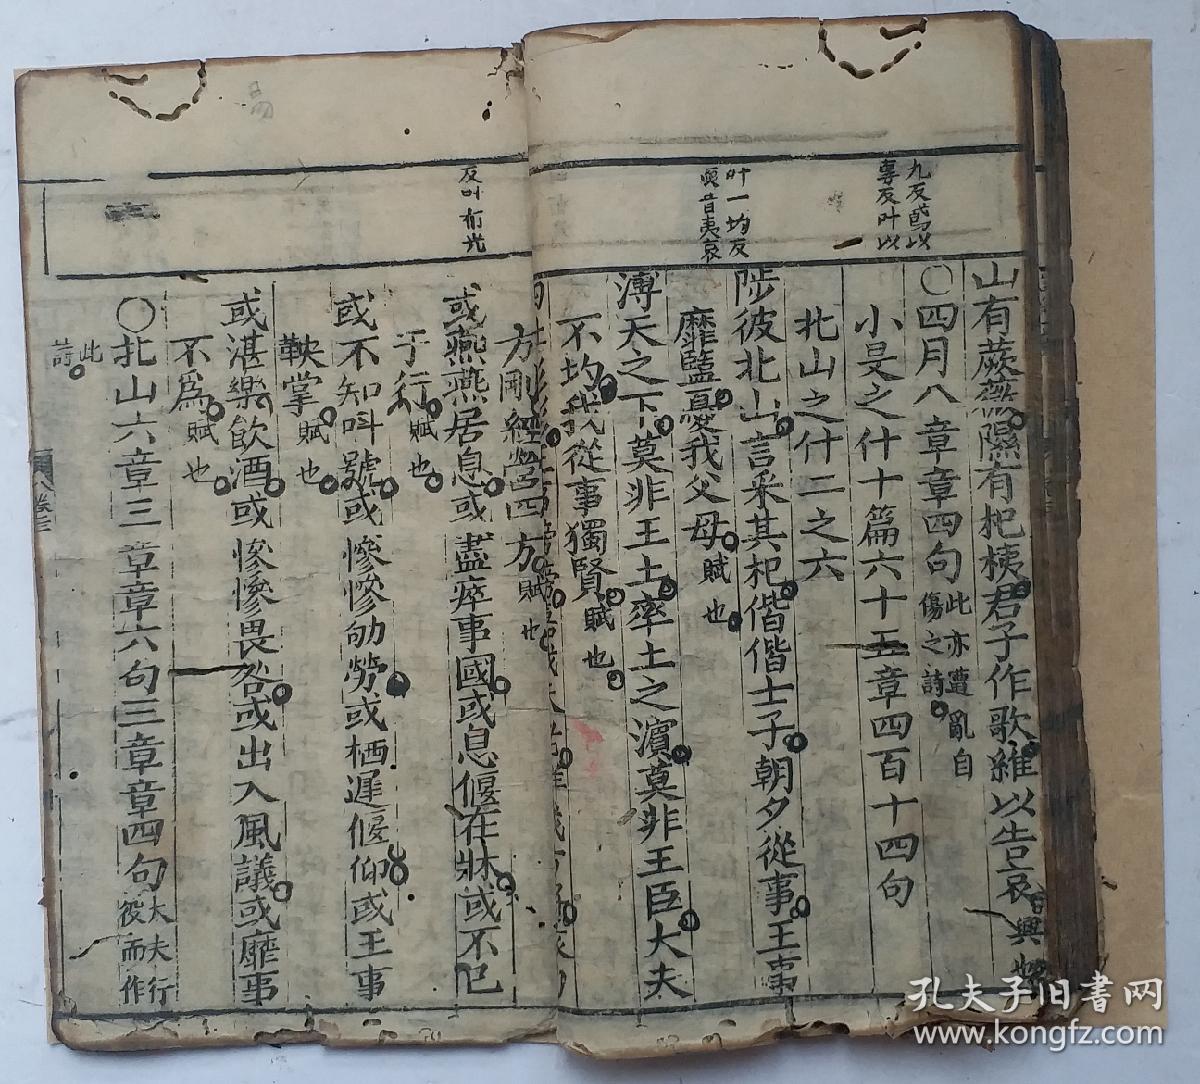 九反鳶以
專反叶以
山有蕨薇隰有杞桋君子作歌維以告哀
○四月八章章四句此亦遭亂自
傷之詩
小旻之什十篇六十五章四百十四句
北山之什二之六
叶一均反
陟彼北山言采其杞偕偕士子朝夕從事王事
靡盬憂我父母賦也
溥天之下莫非王土率土之濱莫非王臣大夫
不均我從事獨賢賦也
方剛經營四方賦也
或燕燕居息或盡瘁事國或息偃在牀或不已
于行賦也
或不知叫號或慘慘劬勞或栖遲偃仰或王事
鞅掌賦也
或湛樂飲酒或慘慘畏咎或出入風議或靡事
不為賦也
○北山六章三章章六句三章章四句大夫行
役而作
此
詩
孔夫子旧書网
www.kongfz.com